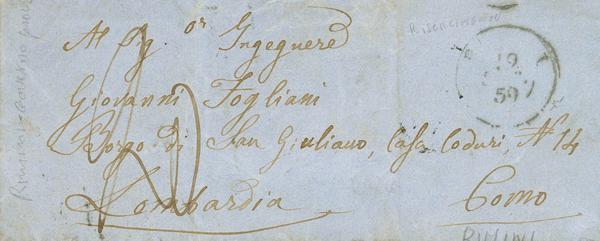 Al Sig.or Ingegnere
Giovanni Fogliani
Borgo di San Giuliano, Casa Coduri, N. 14
Lombardia Como
RISORGIMENTO
19
59
RIMINI